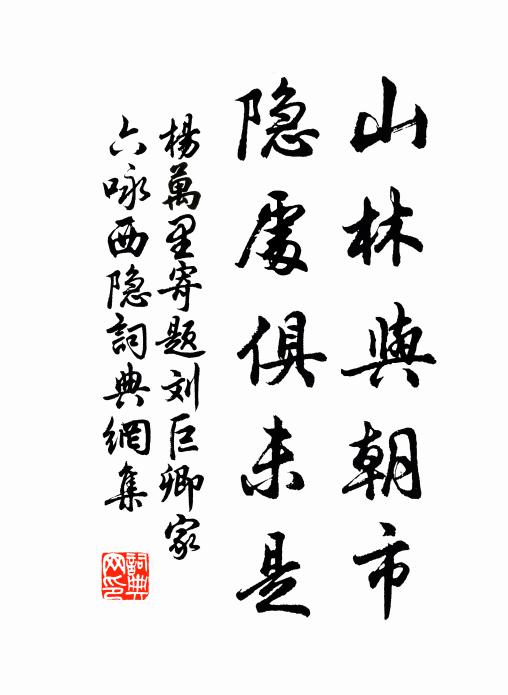 山林與朝市
隐處俱未是
楊萬里寄题刘巨卿家
六咏西隐詞典網集
詞典
网印